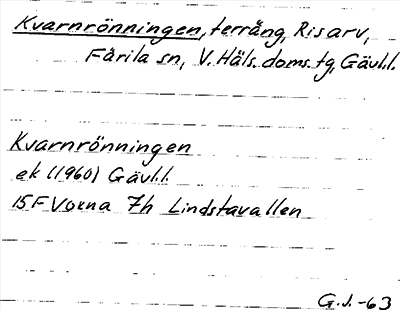 Kvarnrönningen, terräng, Risarv,
Färila sn, V. Häls. doms. tg, Gävl.l.
Kvarnrönningen
ek (1960) Gävl.l.
15F Voxna 7h Lindstavallen
G.J.-63